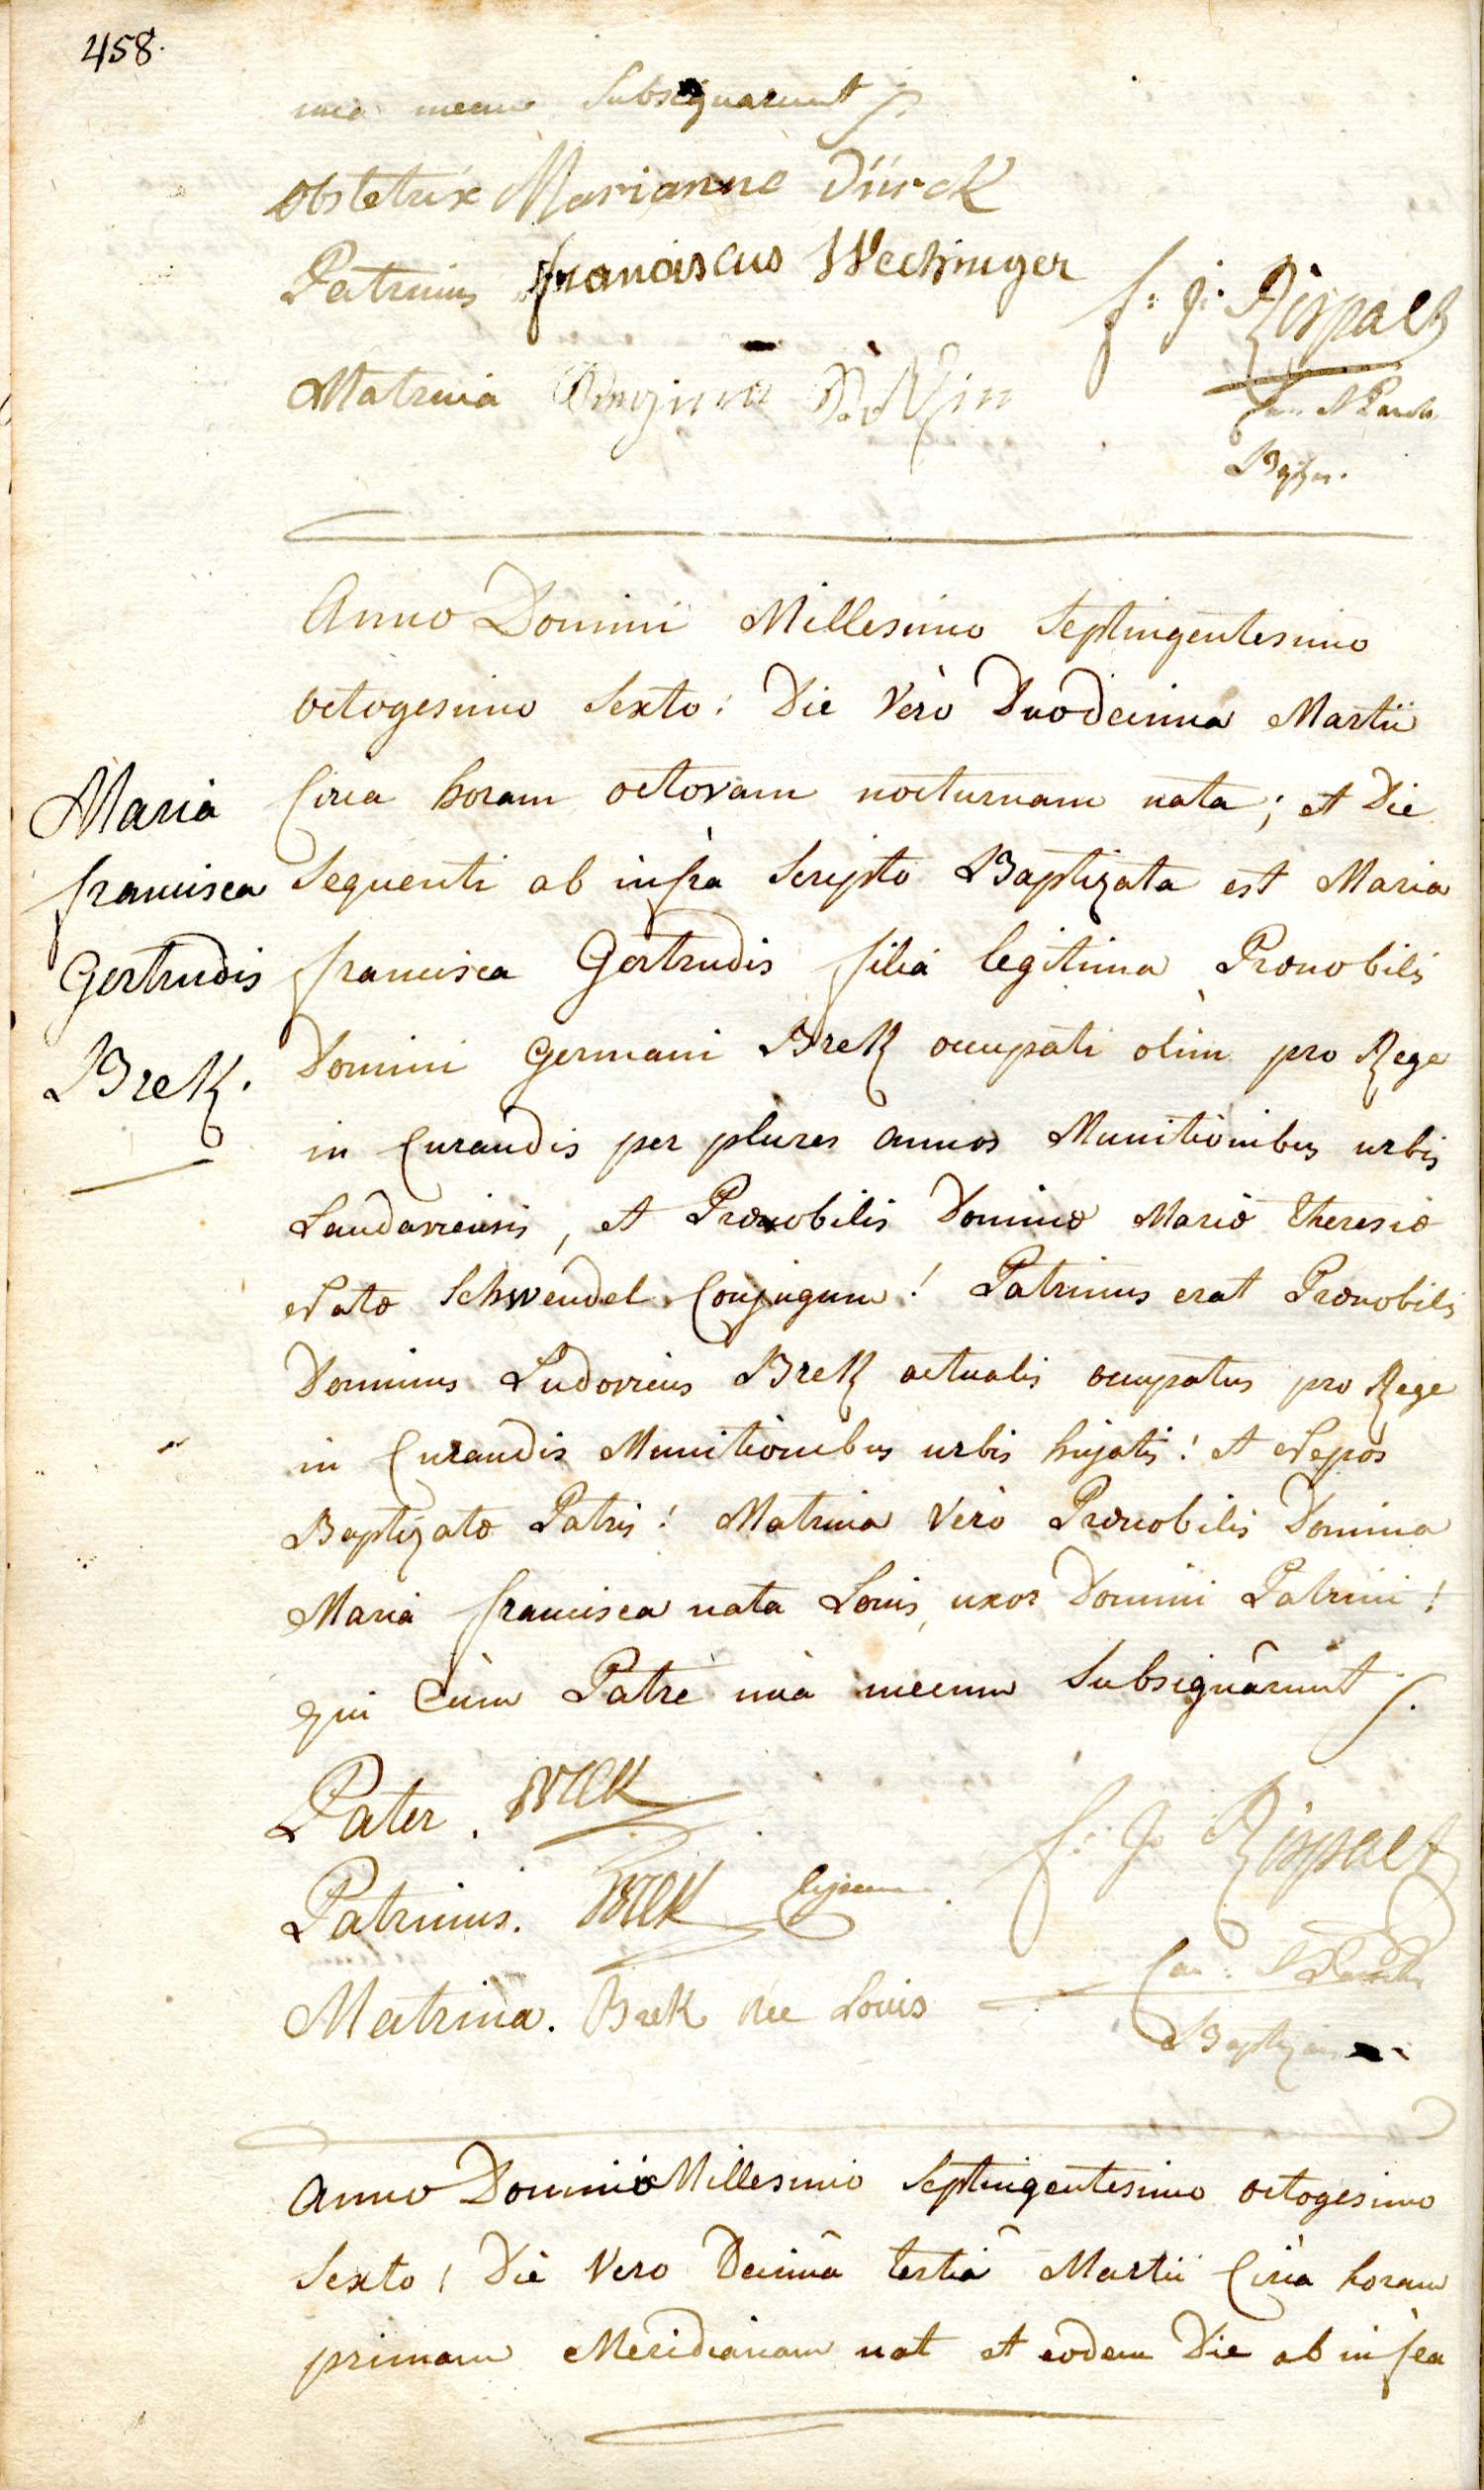 458.
una mecum Subsignarunt ;.
Obstetrix Marianne Dürck
Patrinus franciscus Wechinger
f: j: Rispalt
Matrina
Baptizans.
Anno Domini Millesimo Septingentesimo
octogesimo Sexto: Die Verò Duodecima Martii
Circa horam octovam nocturnam nata; et Die
Sequenti ab infra Scripto Baptizata est Maria
francisca Gertrudis filia legitima Prænobilis
Domini Germani Brek occupati olim pro Rege
in Curandis per plures annos Munitionibus urbis
Landaviensis, et Prænobilis Dominæ Mariæ Theresiæ
Natæ Schwendel Conjugum! Patrinus erat Prænobilis
Dominus Ludovicus Brek actualis occupatus pro Rege
in Curandis Munitionibus urbis hujatis! et Nepos
Baptizatæ Patris! Matrina Verò Prænobilis Domina
Maria francisca nata Louis, uxor Domini Patrini!
qui Cùm Patre unà mecum Subsignârunt ;.
Maria
francisca
Gertrudis
Brek.
Pater. Brek
Patrinus. Brek
f: J: Rispalt
Matrina. Brek née Louis
Baptizans
Anno Domini Millesimo Septingentesimo octogesimo
Sexto! Die Vero Decimâ tertiâ Martii Circa horam
primam Meridianam nat et eodem Die ab infra